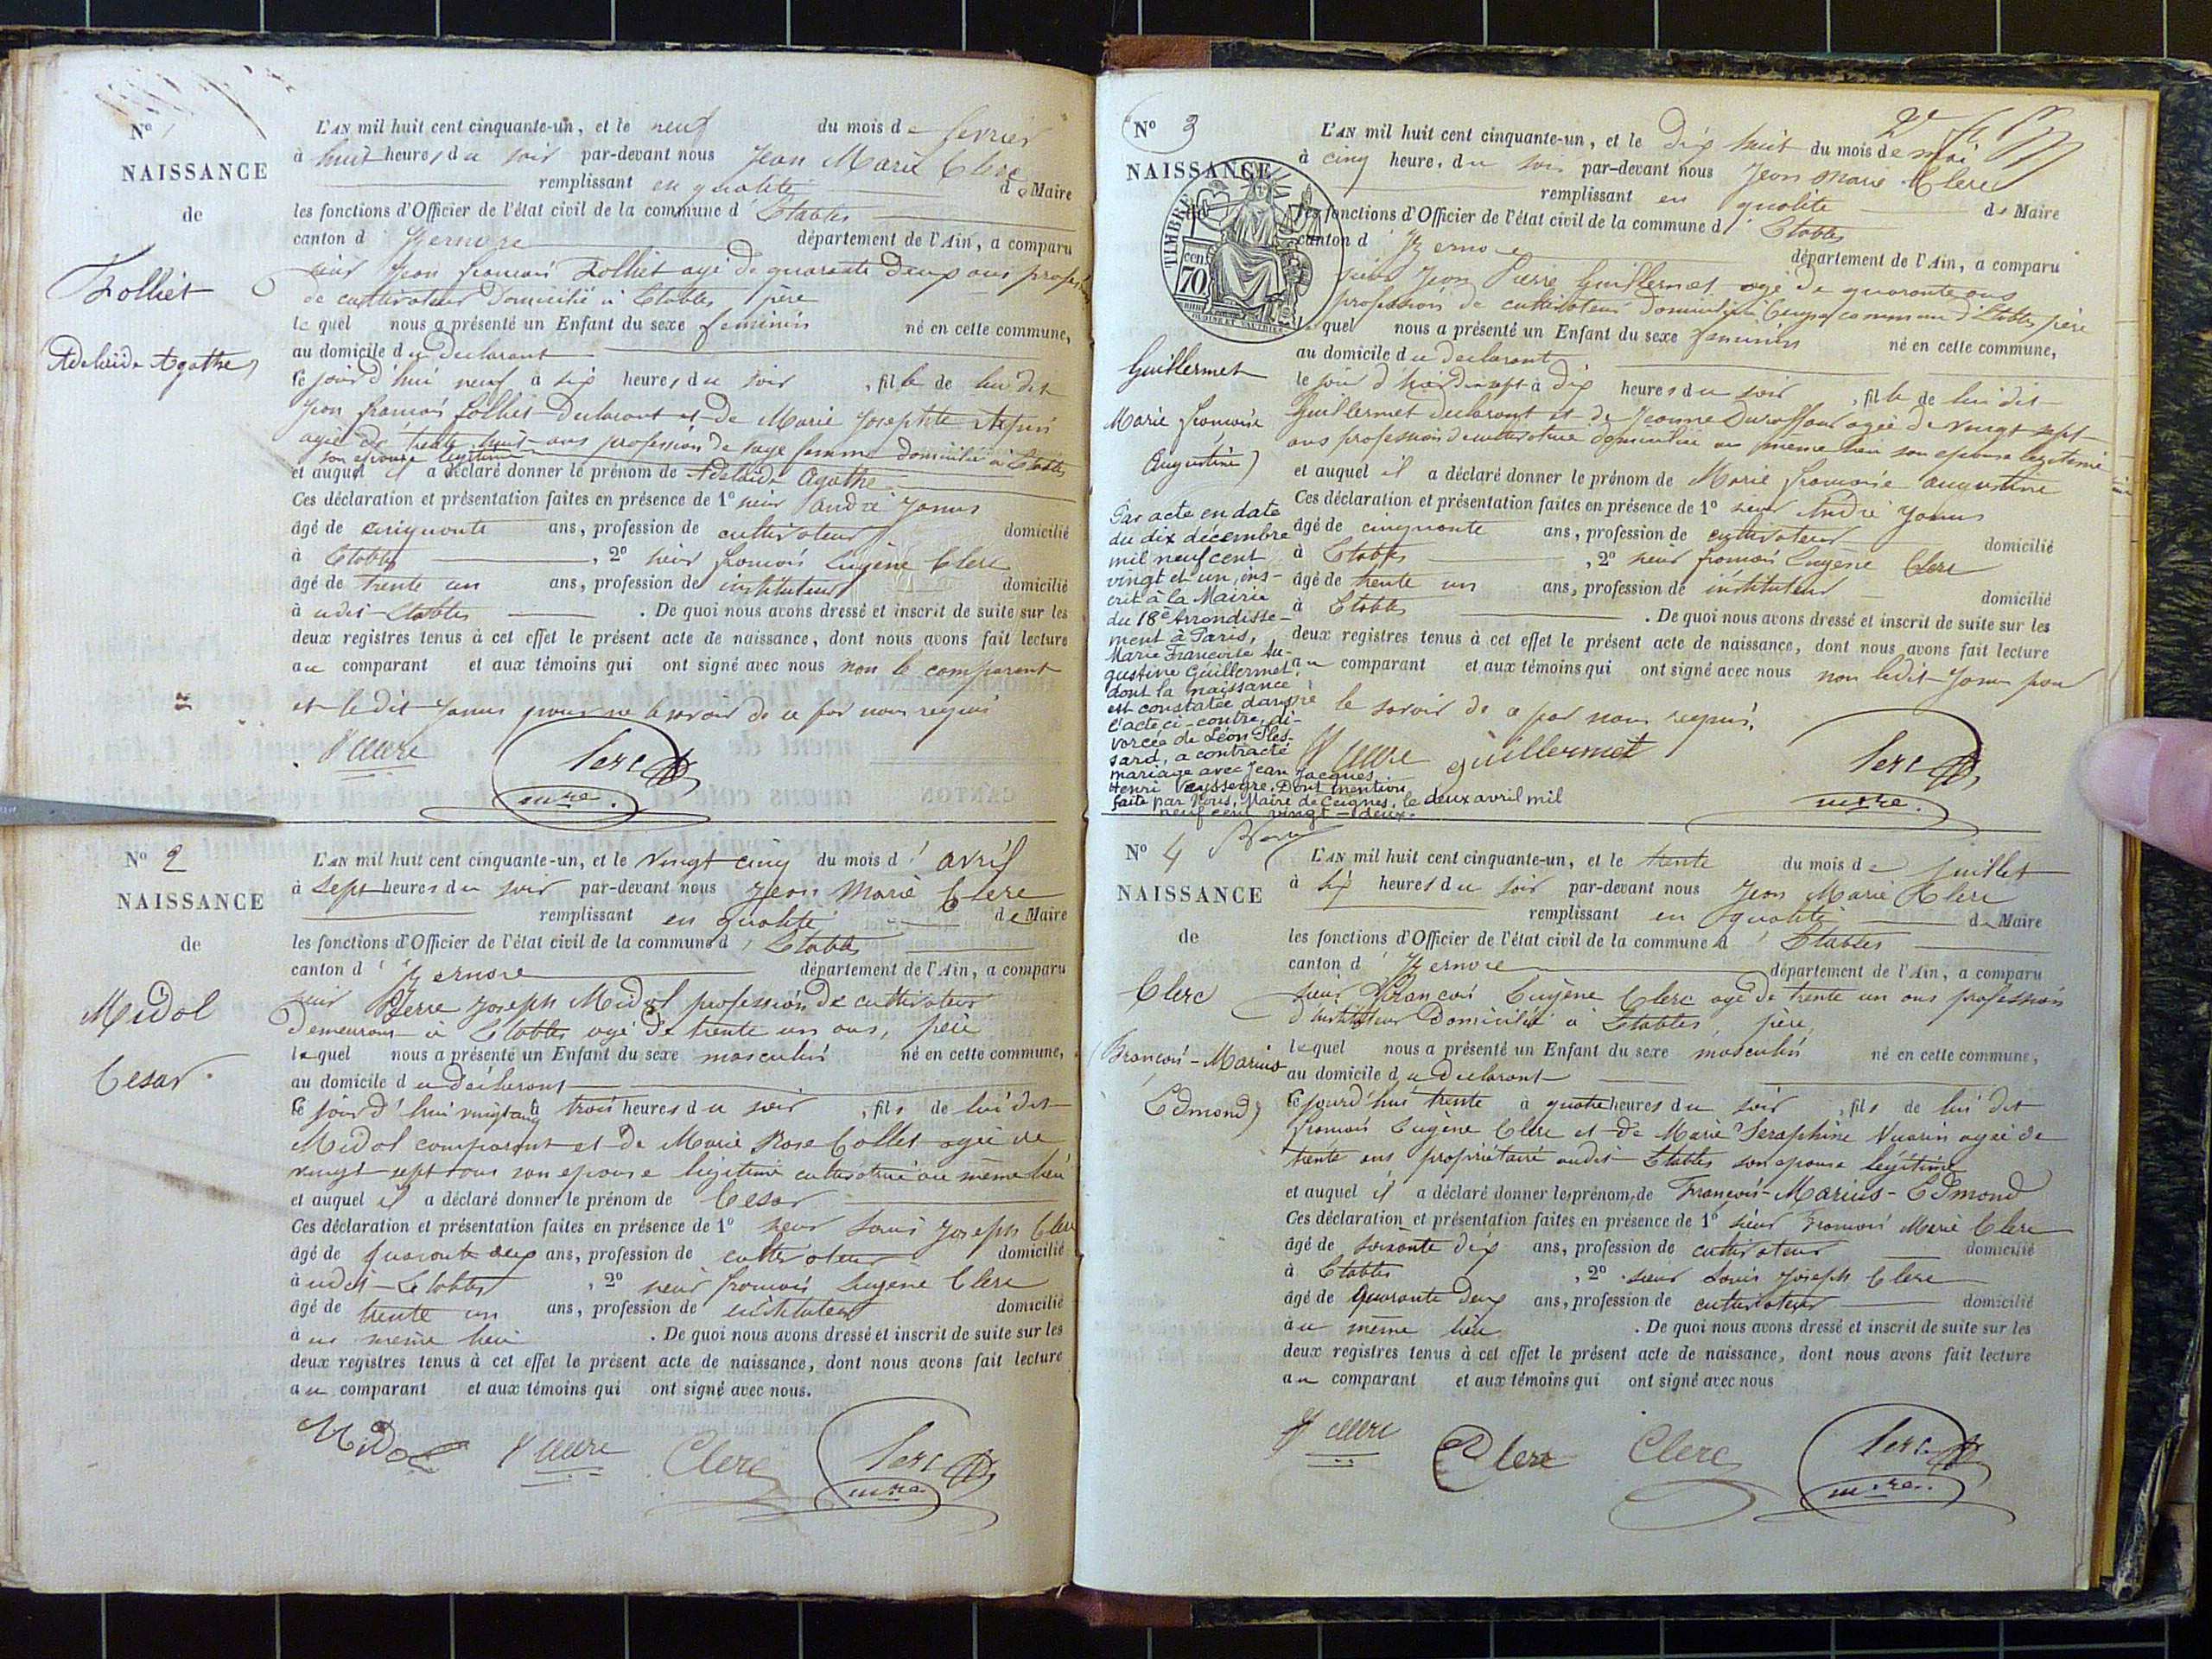 N° 1
NAISSANCE
de
Folliet
Adelaïde Agathe
L'AN mil huit cent cinquante-un, et le neuf du mois de fevrier
à huit heures du soir par-devant nous Jean Marie Clerc
remplissant en qualité de Maire
les fonctions d'Officier de l'état civil de la commune d'Etables
canton d'Izernore département de l'Ain, a comparu
sieur Jean françois Folliet agé de quarante deux ans profession
de cultivateur domicilié à Etables père
lequel nous a présenté un Enfant du sexe feminin né en cette commune,
au domicile du declarant
le jour d'hui neuf à six heures du soir, fille de lui dit
Jean françois folliet declarant et de Marie Josephte
agée de trente huit ans profession de sage femme domiciliée à Etables
son epouse legitime
et auquel il a déclaré donner le prénom de Adelaïde Agathe
Ces déclaration et présentation faites en présence de 1° sieur andré Janus
âgé de cinquante ans, profession de cultivateur domicilié
à Etables, 2° sieur françois Eugène Clerc
âgé de trente un ans, profession de instituteur domicilié
à udit Etables. De quoi nous avons dressé et inscrit de suite sur les
deux registres tenus à cet effet le présent acte de naissance, dont nous avons fait lecture
au comparant et aux témoins qui ont signé avec nous non le comparant
et le dit Janus pour ne le savoir de ce par nous requis
Clerc
mre.
N° 2
NAISSANCE
de
Midol
Cesar.
L'AN mil huit cent cinquante-un, et le vingt cinq du mois d'avril
à sept heures du soir par-devant nous Jean Marie Clerc
remplissant en qualité de Maire
les fonctions d'Officier de l'état civil de la commune d'Etables
canton d'Izernore département de l'Ain, a comparu
sieur Pierre Joseph Midol profession de cultivateur
demeurant à Etables agé de trente un ans, père
lequel nous a présenté un Enfant du sexe masculin né en cette commune,
au domicile du déclarant
le jour d'hui vingt cinq à trois heures du soir, fils de lui dit
Midol comparant et de Marie Rose Collet agée de
vingt sept ans son epouse legitime cultivatrice au même lieu
et auquel il a déclaré donner le prénom de Cesar
Ces déclaration et présentation faites en présence de 1° sieur Louis Joseph Clerc
âgé de quarante deux ans, profession de cultivateur domicilié
à udit Etables, 2° sieur françois Eugène Clerc
âgé de trente un ans, profession de instituteur domicilié
à u même lieu. De quoi nous avons dressé et inscrit de suite sur les
deux registres tenus à cet effet le présent acte de naissance, dont nous avons fait lecture
au comparant et aux témoins qui ont signé avec nous.
Midol Clerc Clerc
mre.
N° 3
NAISSANCE
TIMBRE
70 cent
Guillermet
Marie françoise
Augustine
L'AN mil huit cent cinquante-un, et le dix huit du mois de mai
à cinq heure. du soir par-devant nous Jean Marie Clerc
remplissant en qualité de Maire
les fonctions d'Officier de l'état civil de la commune d'Etables
canton d'Izernore département de l'Ain, a comparu
sieur Jean Pierre Guillermet agé de quarante ans
profession de cultivateur domicilié à commune d'Etables père
lequel nous a présenté un Enfant du sexe feminin né en cette commune,
au domicile du declarant
le jour d'hier dix sept à dix heures du soir, fille de lui dit
Guillermet declarant et de Jeanne agée de vingt sept
ans profession de cultivatrice domiciliée au même lieu son epouse legitime
et auquel il a déclaré donner le prénom de Marie françoise augustine
Ces déclaration et présentation faites en présence de 1° sieur André Janus
âgé de cinquante ans, profession de cultivateur domicilié
à Etables, 2° sieur françois Eugène Clerc
âgé de trente un ans, profession de instituteur domicilié
à Etables. De quoi nous avons dressé et inscrit de suite sur les
deux registres tenus à cet effet le présent acte de naissance, dont nous avons fait lecture
au comparant et aux témoins qui ont signé avec nous non ledit Janus pour
ne le savoir de ce par nous requis.
guillermet Clerc
mre.
Par acte en date
du dix décembre
mil neuf cent
vingt et un, ins-
crit à la Mairie
du 18e Arrondisse-
ment à Paris,
Marie Françoise Au-
gustine Guillermet,
dont la naissance
est constatée dans
l'acte ci-contre, di-
vorcée de Léon Ples-
sard, a contracté
mariage avec Jean Jacques
Henri Veyssegre. Dont mention
faite par Nous, Maire de Ceignes, le deux avril mil
neuf cent vingt-deux.
N° 4
NAISSANCE
de
Clerc
François-Marius
Edmond
L'AN mil huit cent cinquante-un, et le trente du mois de juillet
à six heures du soir par-devant nous Jean Marie Clerc
remplissant en qualité de Maire
les fonctions d'Officier de l'état civil de la commune d'Etables
canton d'Izernore département de l'Ain, a comparu
sieur François Eugène Clerc agé de trente un ans profession
d'instituteur domicilié à Etables, père,
lequel nous a présenté un Enfant du sexe masculin né en cette commune,
au domicile du declarant
le jourd'hui trente à quatre heures du soir, fils de lui dit
françois Eugène Clerc et de Marie Seraphine Nuarin agée de
trente ans propriétaire audit Etables son epouse légitime
et auquel il a déclaré donner le prénom de François-Marius-Edmond
Ces déclaration et présentation faites en présence de 1° sieur François Marie Clerc
âgé de soixante dix ans, profession de cultivateur domicilié
à Etables, 2° sieur Louis Joseph Clerc
âgé de quarante deux ans, profession de cultivateur domicilié
au même lieu. De quoi nous avons dressé et inscrit de suite sur les
deux registres tenus à cet effet le présent acte de naissance, dont nous avons fait lecture
au comparant et aux témoins qui ont signé avec nous
Clerc Clerc Clerc
mre.